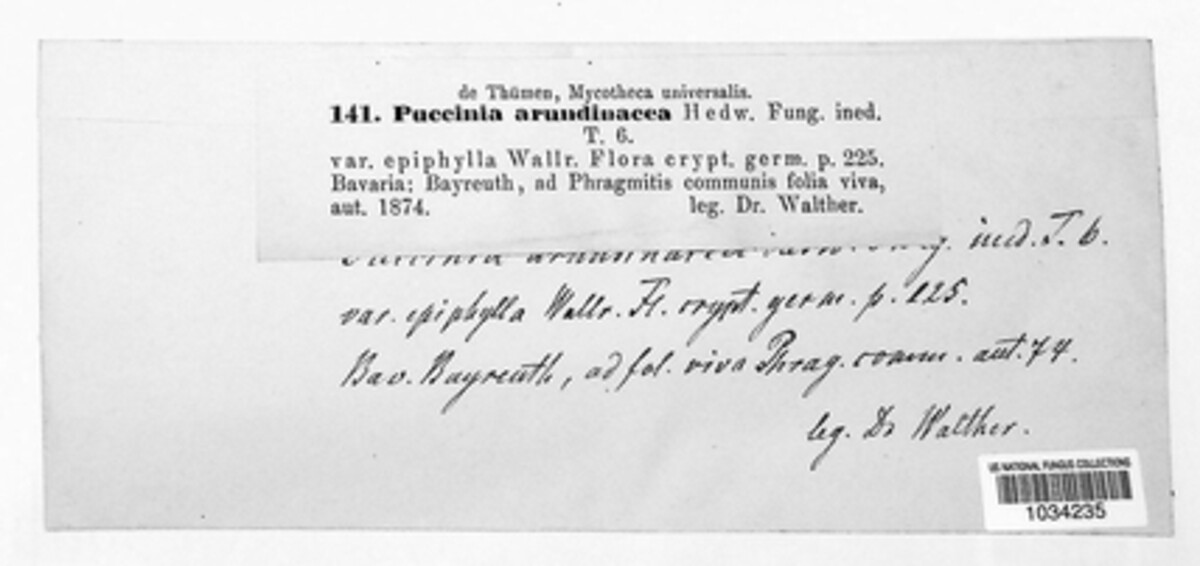 de Thümen, Mycotheca universalis.
141. Puccinia arundinacea Hedw. Fung. ined.
T. 6.
var. epiphylla Wallr. Flora crypt. germ. p. 225.
Bavaria: Bayreuth, ad Phragmitis communis folia viva,
aut. 1874. leg. Dr. Walther.
Puccinia arundinacea Hedw. Fung. ined. T. 6.
var. epiphylla Wallr. Fl. crypt. germ. p. 225.
Bav. Bayreuth, ad fol. viva Phrag. comm. aut. 74.
leg. Dr Walther.
US NATIONAL FUNGUS COLLECTIONS
1034235